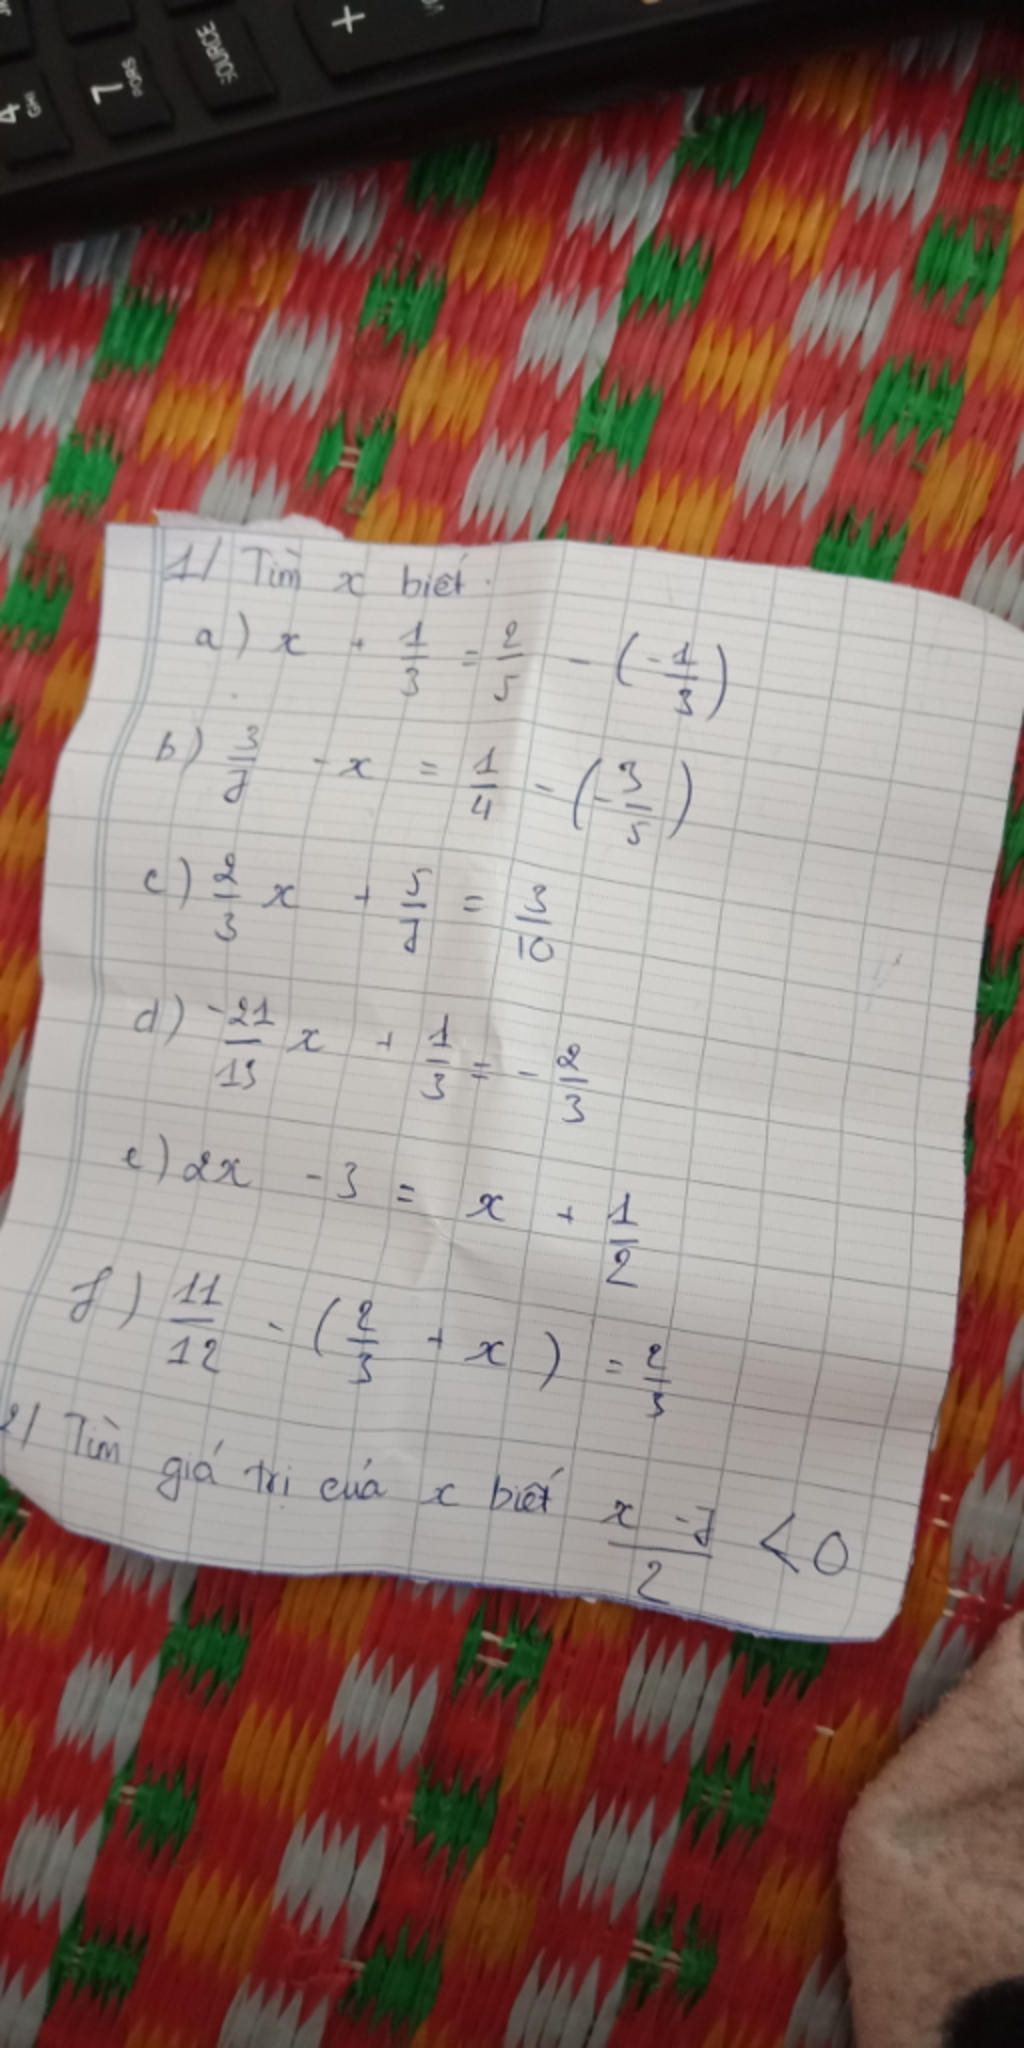 SOURCE
+
7 PQRS
4 GHI
1/ Tìm x biết.
a) x + 1/3 = 2/5 - (-1/3)
b) 3/7 - x = 1/4 - (-3/5)
c) 2/3 x + 5/7 = 3/10
d) -21/13 x + 1/3 = -2/3
e) 2x - 3 = x + 1/2
f) 11/12 - (2/3 + x) = 2/3
2/ Tìm giá trị của x biết (x - 7)/2 < 0